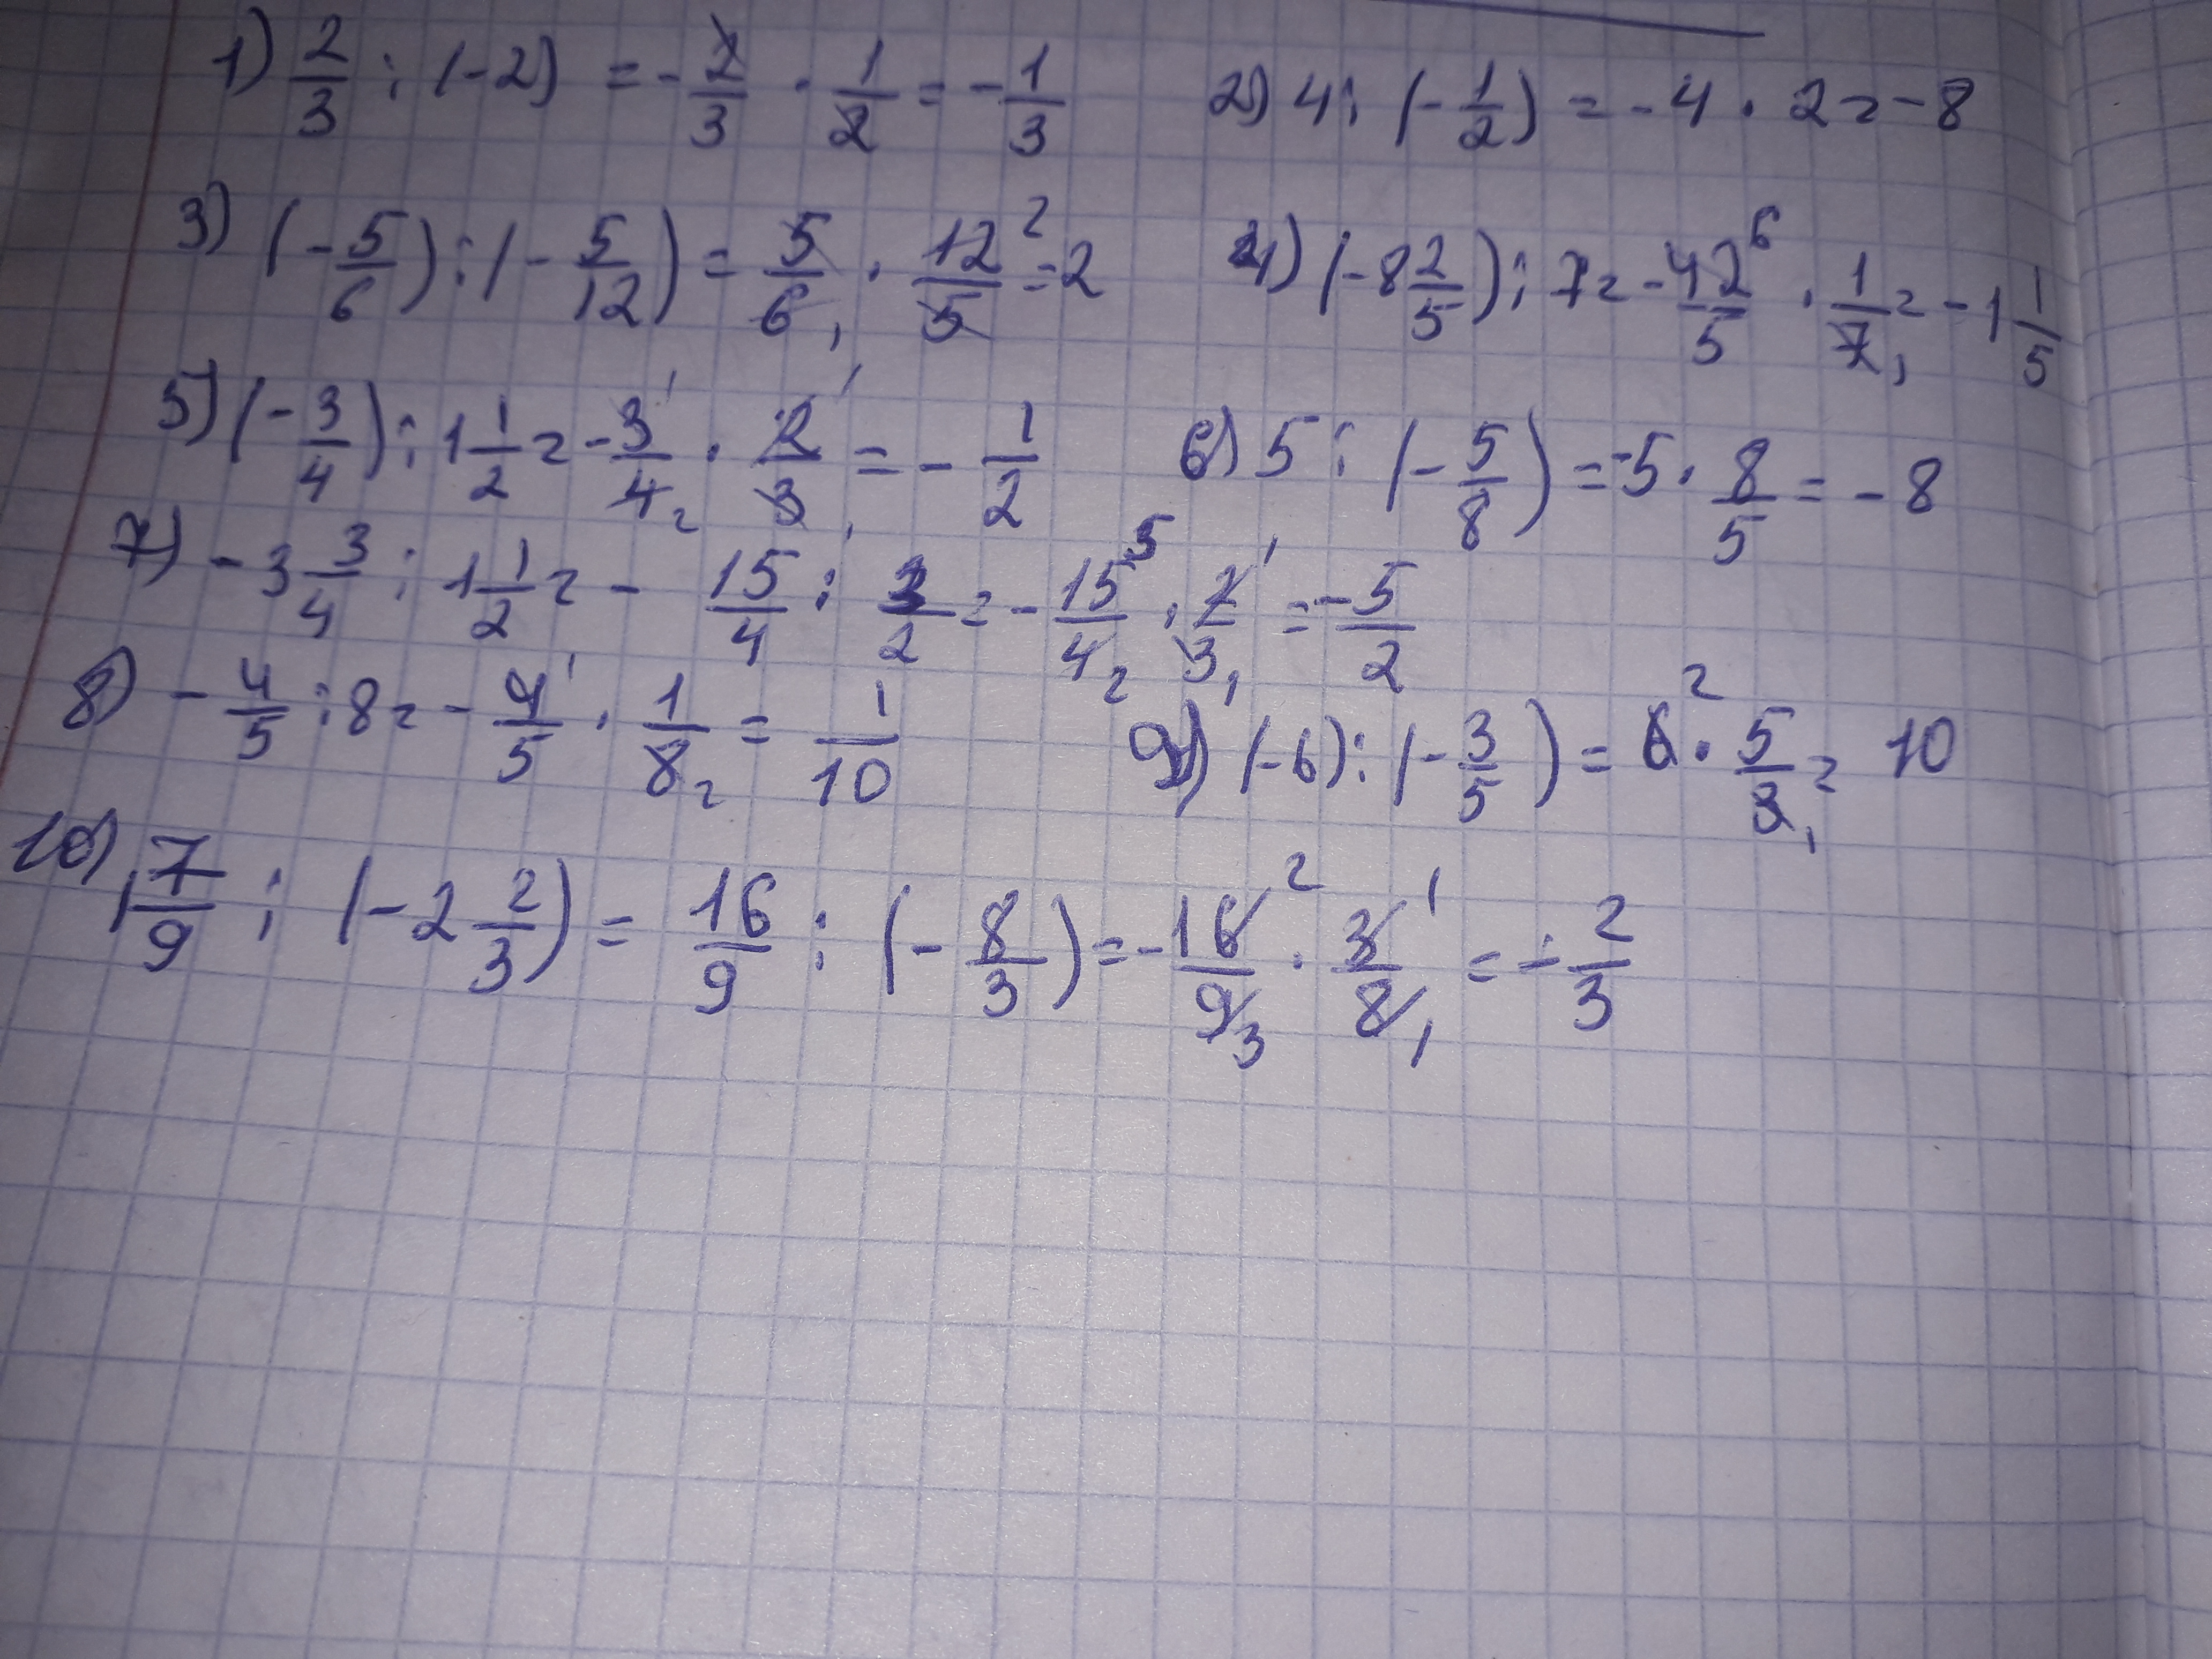 1) 2/3 : (-2) = -2/3 · 1/2 = -1/3 2) 4 : (-1/2) = -4 · 2 = -8
3) (-5/6) : (-5/12) = 5/6 1 · 12 2/5 = 2 4) (-8 2/5) : 7 = -42 6/5 · 1/7 1 = -1 1/5
5) (-3/4) : 1 1/2 = -3 1/4 2 · 2 1/3 1 = -1/2 6) 5 : (-5/8) = -5 · 8/5 = -8
7) -3 3/4 : 1 1/2 = -15/4 : 3/2 = -15 5/4 2 · 2 1/3 1 = -5/2
8) -4/5 : 8 = -4 1/5 · 1/8 2 = 1/10 9) (-6) : (-3/5) = 6 2 · 5/3 1 = 10
10) 1 7/9 : (-2 2/3) = 16/9 : (-8/3) = -16 2/9 3 · 3 1/8 1 = -2/3